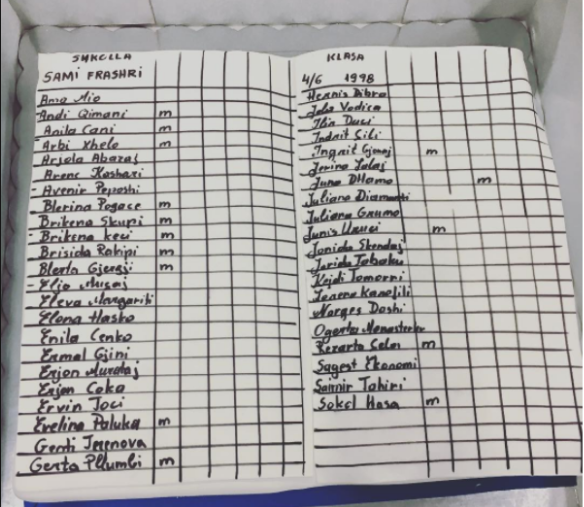 SHKOLLA
SAMI FRASHRI
Ana Mio
Andi Qimami m
Anila Cani m
Arbi Xhelo m
Arjola Abazaj
Arenc Koshari
- Avenir Peposhi
Blerina Pogace m
Brikena Skupi m
Brikena keci m
Brisida Rahipi m
Blerta Gjergji m
- Elio Mucaj
Eleva Mangarit
Elona Hasko
Enila Cenko
Enmal Gjini
Erjon Murataj
Erjon Coka
Ervin Joci
Evelina Paluka m
Genti
Gerta Pllumbi m
KLASA
4/6 1998
Hernis Dibra
Vodica
Ilia Duci
Indrit Cili
Ingrit m
Jerina Lalaj
Juna DHamo m
Juliano Diamanti
Juliana Grumo
Junis m
Jonida Skendaj
Jorida Tabaku
Kejdi Tomorri
Narges Doshi
Ogerta
Rezarta m
Sagest Ekonomi
Saimir Tahiri
Sokol Hasa m